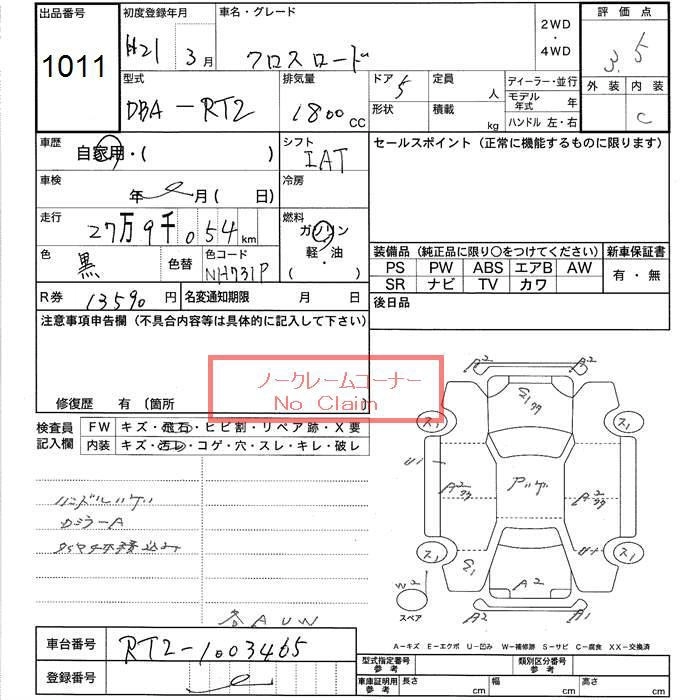 出品番号
1011
初度登録年月
H21 3月
車名・グレード
クロスロード
2WD
・
4WD
評価点
3.5
外装 内装
C
型式
DBA-RT2
排気量
1800 CC
ドア 5
形状
定員 人
積載 kg
ディーラー・並行
モデル年式 年
ハンドル 左・右
車歴
自家用・( )
シフト
IAT
セールスポイント（正常に機能するものに限ります）
車検
年 月( 日)
冷房
走行
27万9千054km
燃料
ガソリン
軽・油
( )
色
黒
色替
色コード
NH731P
装備品（純正品に限り○をつけてください）
新車保証書
PS PW ABS エアB AW
SR ナビ TV カワ
有・無
R券 13590円
名変通知期限 月 日
後日品
注意事項申告欄（不具合内容等は具体的に記入して下さい）
ノークレームコーナー
No Claim
修復歴 有〔箇所 〕
検査員
記入欄
FW キズ・飛石・ヒビ割・リペア跡・X要
内装 キズ・汚レ・コゲ・穴・スレ・キレ・破レ
ハンドルハゲ
カミラーA
各AUW
A2
スペア
W2
A2
A1
A-キズ E-エクボ U-凹み W-補修跡 S-サビ C-腐食 XX-交換済
車台番号 RT2-1003465
登録番号
型式指定番号
参考
類別区分番号
参考
車庫証明用
参考
長さ cm
幅 cm
高さ cm